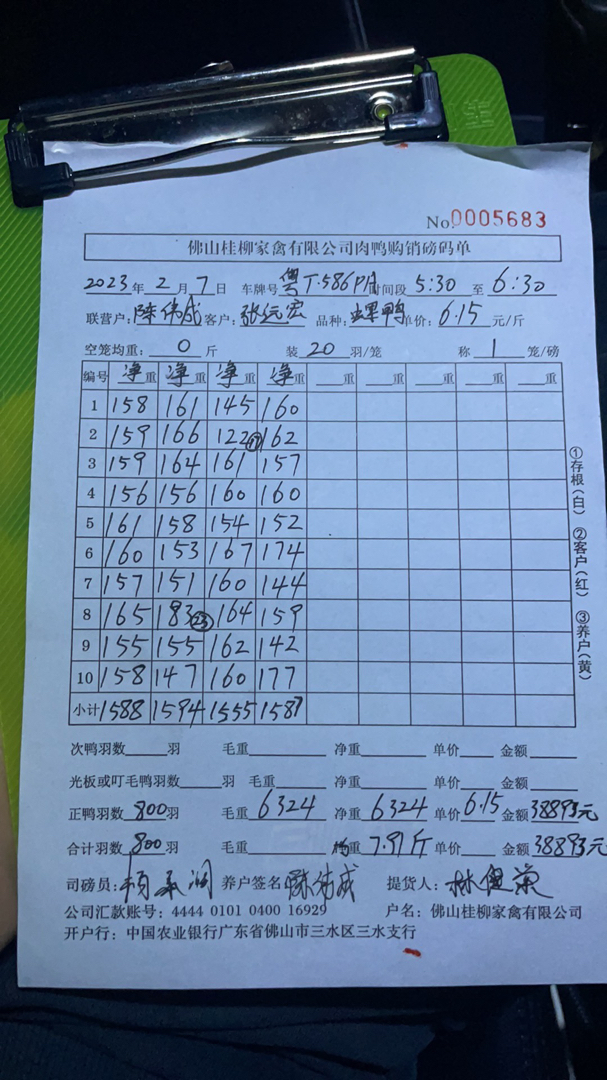 No.0005683
佛山桂柳家禽有限公司肉鸭购销磅码单
2023年 2月 7日 车牌号 粤T·586P月 时间段 5:30 至 6:30
联营户: 陈伟成 客户: 张远宏 品种: 螺鸭 单价: 6.15 元/斤
空笼均重: 0 斤 装 20 羽/笼 称 1 笼/磅
编号 净重 净重 净重 净重 重 重 重 重 重
1 158 161 145 160
2 159 166 122⑰ 162
3 159 164 161 157
4 156 156 160 160
5 161 158 154 152
6 160 153 167 174
7 157 151 160 144
8 165 183㉓ 164 159
9 155 155 162 142
10 158 147 160 177
小计 1588 1594 1555 1587
①存根(白) ②客户(红) ③养户(黄)
次鸭羽数 羽 毛重 净重 单价 金额
光板或叮毛鸭羽数 羽 毛重 净重 单价 金额
正鸭羽数 800羽 毛重 6324 净重 6324 单价 6.15 金额 38893元
合计羽数 800羽 毛重 均重 7.91斤 单价 金额 38893元
司磅员: 养户签名: 陈伟成 提货人: 林
公司汇款账号: 4444 0101 0400 16929 户名: 佛山桂柳家禽有限公司
开户行: 中国农业银行广东省佛山市三水区三水支行